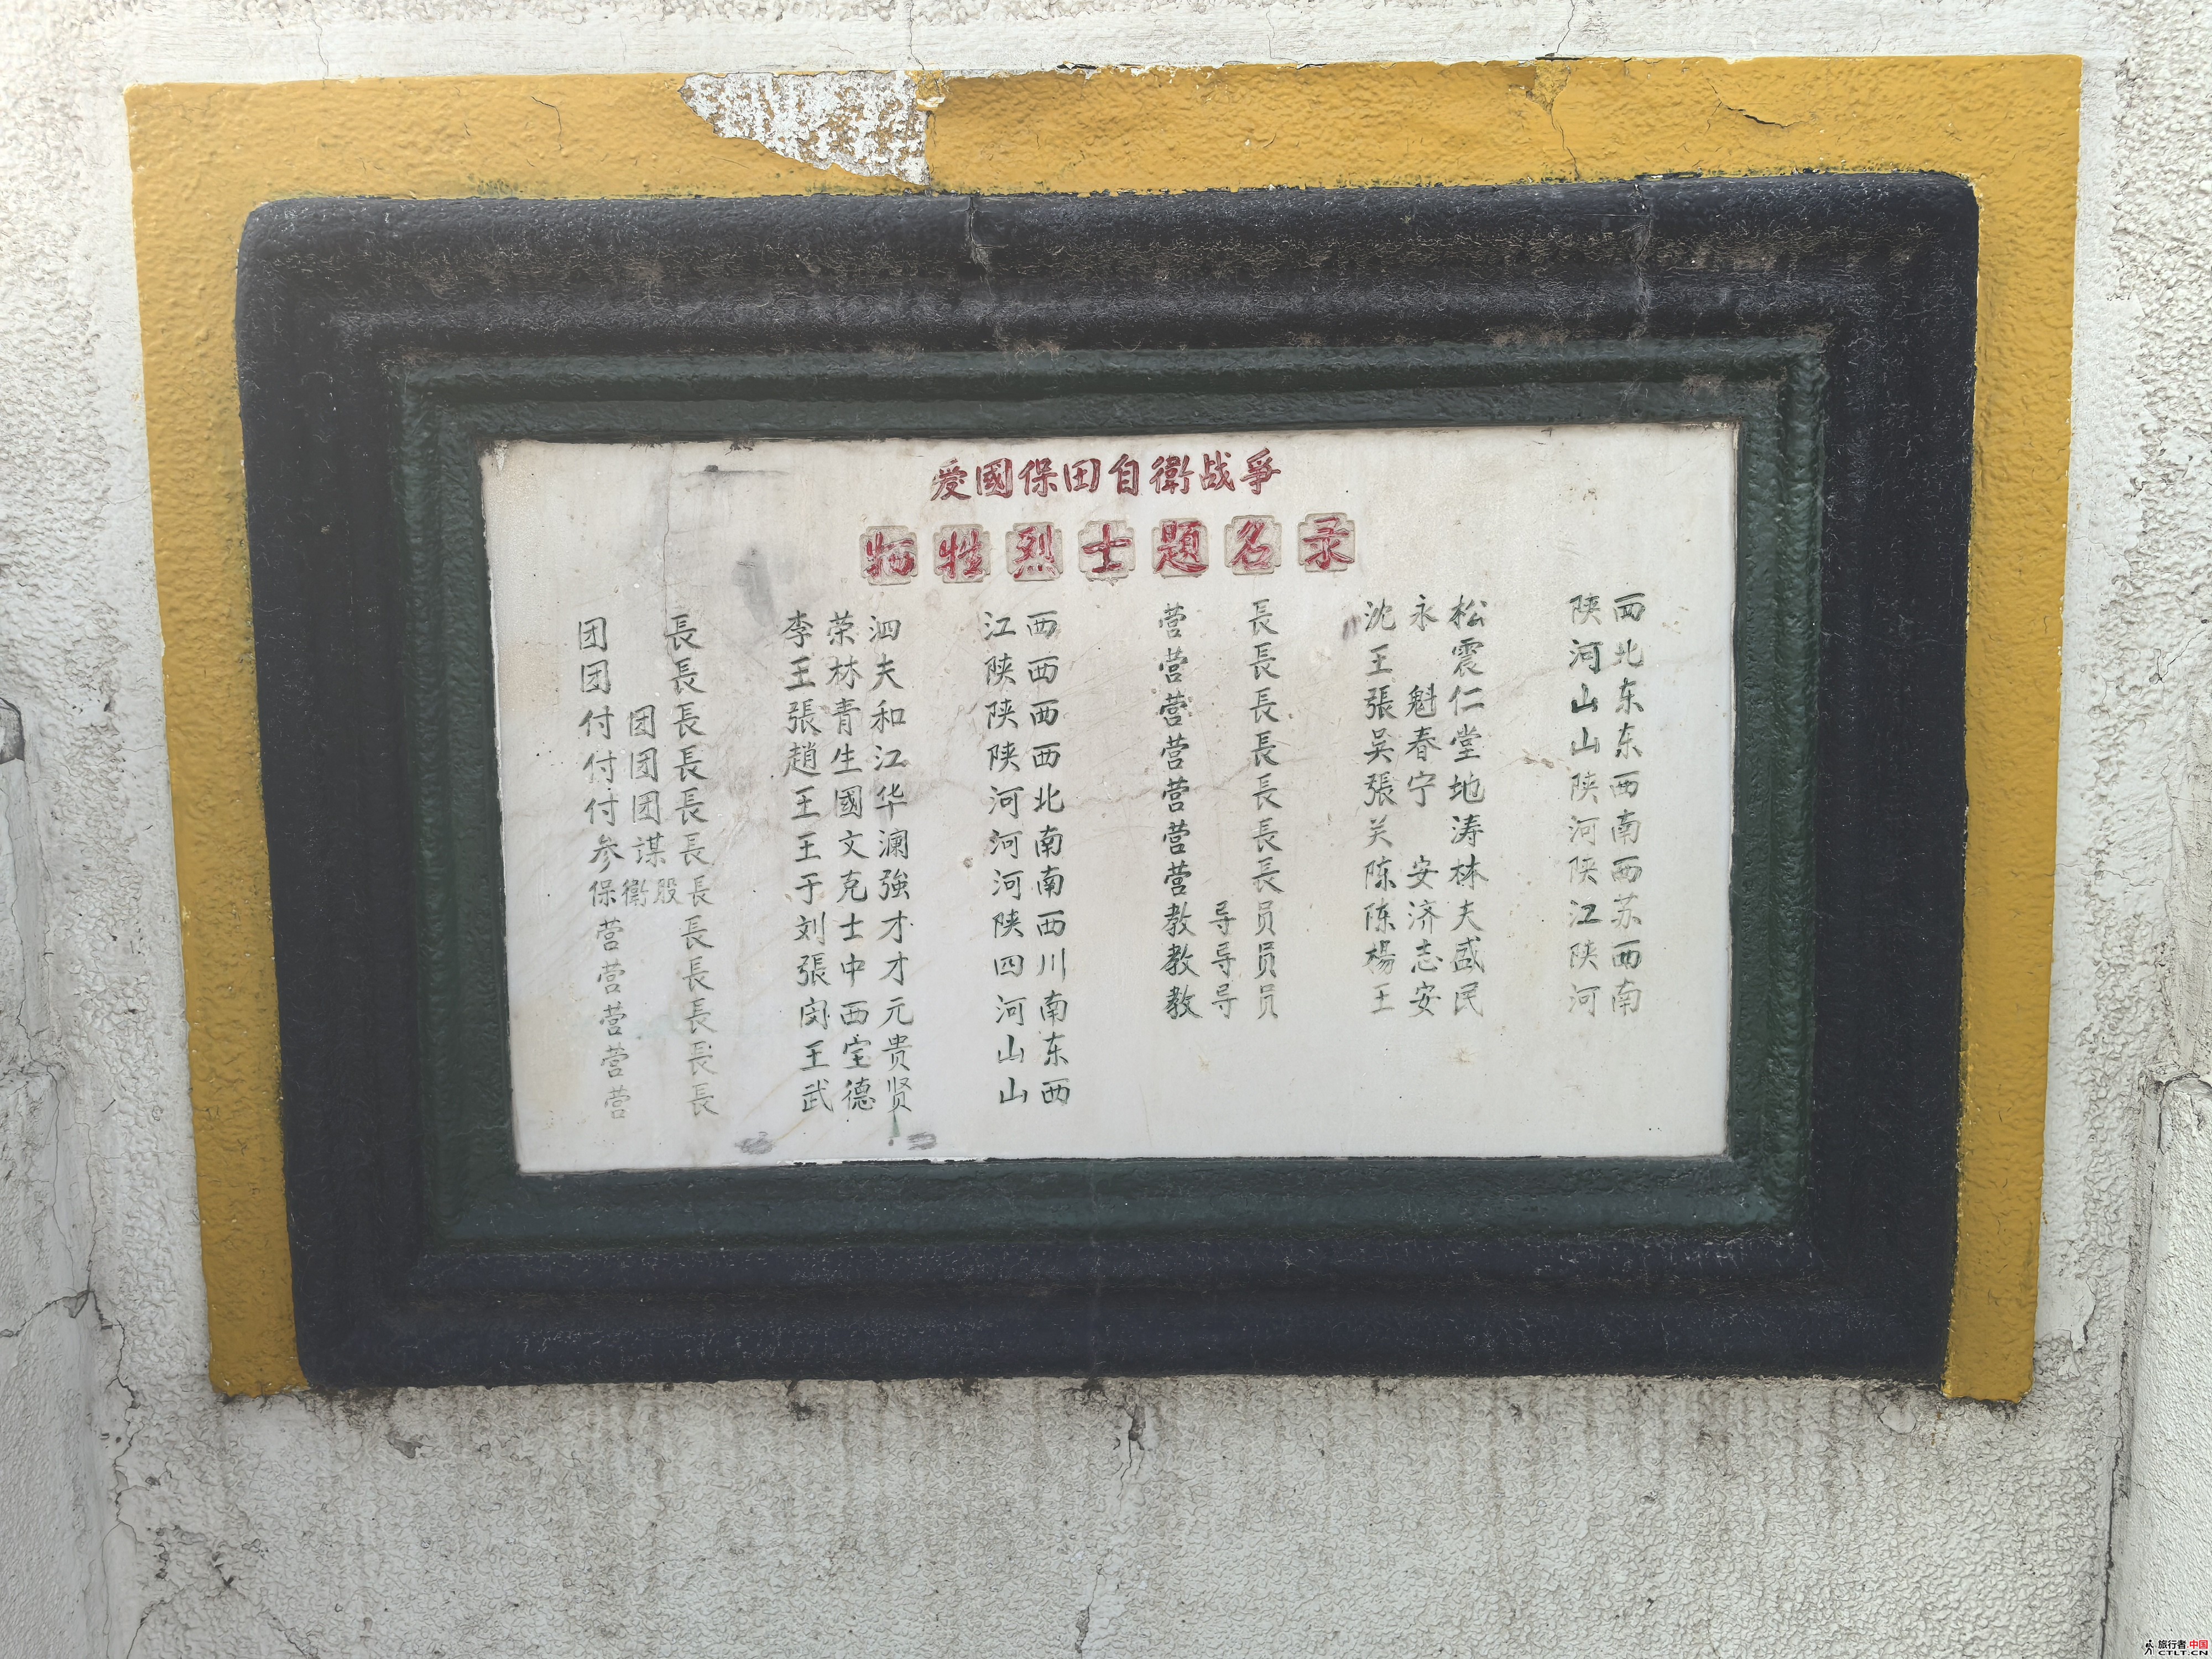 爱國保田自衛战爭
牺牲烈士題名录
团長 李荣泗 江西 营長 沈永松 陕西
团長 王林夫 陕西 营長 王震 河北
付团長 張青和 陕西 营長 張魁仁 山东
付团長 趙生江 陕西 营長 吴春堂 山东
付团長 王國华 河北 营長 張宁地 陕西
参谋長 王文澜 河南 营長 关涛 河南
保衛股長 于克強 河南 营長 陈安林 陕西
营長 刘士才 陕西 教导员 陈济夫 江苏
营長 張中才 四川 教导员 楊志盛 陕西
营長 闵西元 河南 教导员 王安民 河南
营長 王宝贵 山东
营長 武德贤 山西
旅行者.中国
CTLT.CN